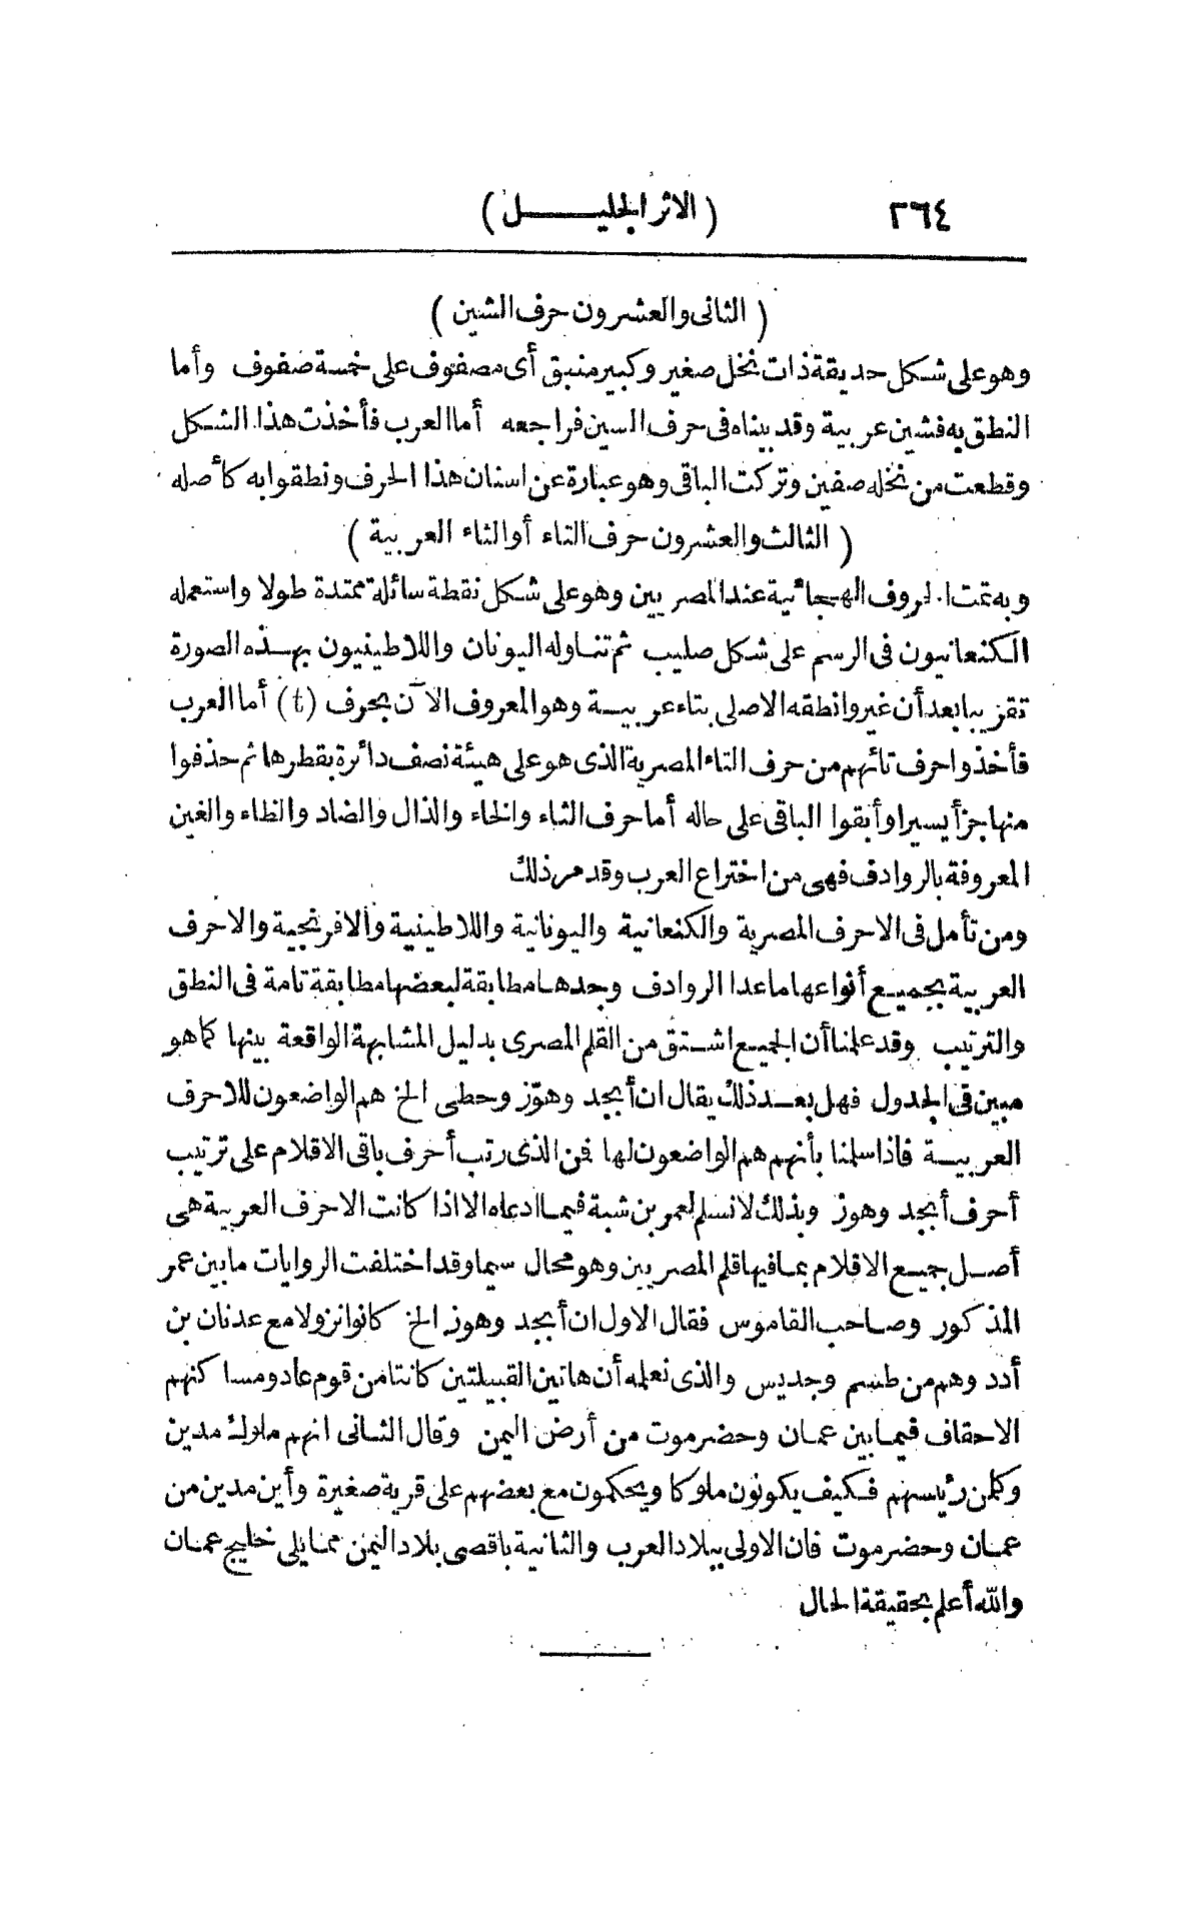 ٢٦٤ (الاثر الجليـــــل)
(الثانى والعشرون حرف الشين)
وهو على شكل حديقة ذات نخل صغير وكبير منبق أى مصفوف على خمسة صفوف وأما
النطق به فشين عربية وقد بيناه فى حرف السين فراجعه أما العرب فأخذت هذا الشكل
وقطعت من نخله صفين وتركت الباقى وهو عبارة عن اسنان هذا الحرف ونطقوا به كأصله
(الثالث والعشرون حرف التاء أو الثاء العربية)
وبه تمت الحروف الهجائية عند المصريين وهو على شكل نقطة سائلة ممتدة طولا واستعمله
الكنعانيون فى الرسم على شكل صليب ثم تناوله اليونان واللاطينيون بهذه الصورة
تقريبا بعد أن غيروا نطقه الاصلى بتاء عربية وهو المعروف الآن بحرف (t) أما العرب
فأخذوا حرف تائهم من حرف التاء المصرية الذى هو على هيئة نصف دائرة بقطرها ثم حذفوا
منها جزأ يسيرا وأبقوا الباقى على حاله أما حرف الثاء والخاء والذال والضاد والظاء والغين
المعروفة بالروادف فهى من اختراع العرب وقد مر ذلك
ومن تأمل فى الاحرف المصرية والكنعانية واليونانية واللاطينية والافرنجية والاحرف
العربية بجميع أنواعها ماعدا الروادف وجدها مطابقة لبعضها مطابقة تامة فى النطق
والترتيب وقد علمنا أن الجميع اشتق من القلم المصرى بدليل المشابهة الواقعة بينها كما هو
مبين فى الجدول فهل بعد ذلك يقال ان أبجد وهوّز وحطى الخ هم الواضعون للاحرف
العربية فاذا سلمنا بأنهم هم الواضعون لها فمن الذى رتب أحرف باقى الاقلام على ترتيب
أحرف أبجد وهوز وبذلك لا نسلم لعمر بن شبة فيما ادعاه الا اذا كانت الاحرف العربية هى
أصل جميع الاقلام بما فيها قلم المصريين وهو محال سيما وقد اختلفت الروايات ما بين عمر
المذكور وصاحب القاموس فقال الاول ان أبجد وهوز الخ كانوا نزولا مع عدنان بن
أدد وهم من طسم وجديس والذى نعلمه أن هاتين القبيلتين كانتا من قوم عاد ومساكنهم
الاحقاف فيما بين عمان وحضرموت من أرض اليمن وقال الثانى انهم ملوك مدين
وكلمن رئيسهم فكيف يكونون ملوكا ويحكمون مع بعضهم على قرية صغيرة وأين مدين من
عمان وحضرموت فان الاولى ببلاد العرب والثانية باقصى بلاد اليمن مما يلى خليج عمان
والله أعلم بحقيقة الحال